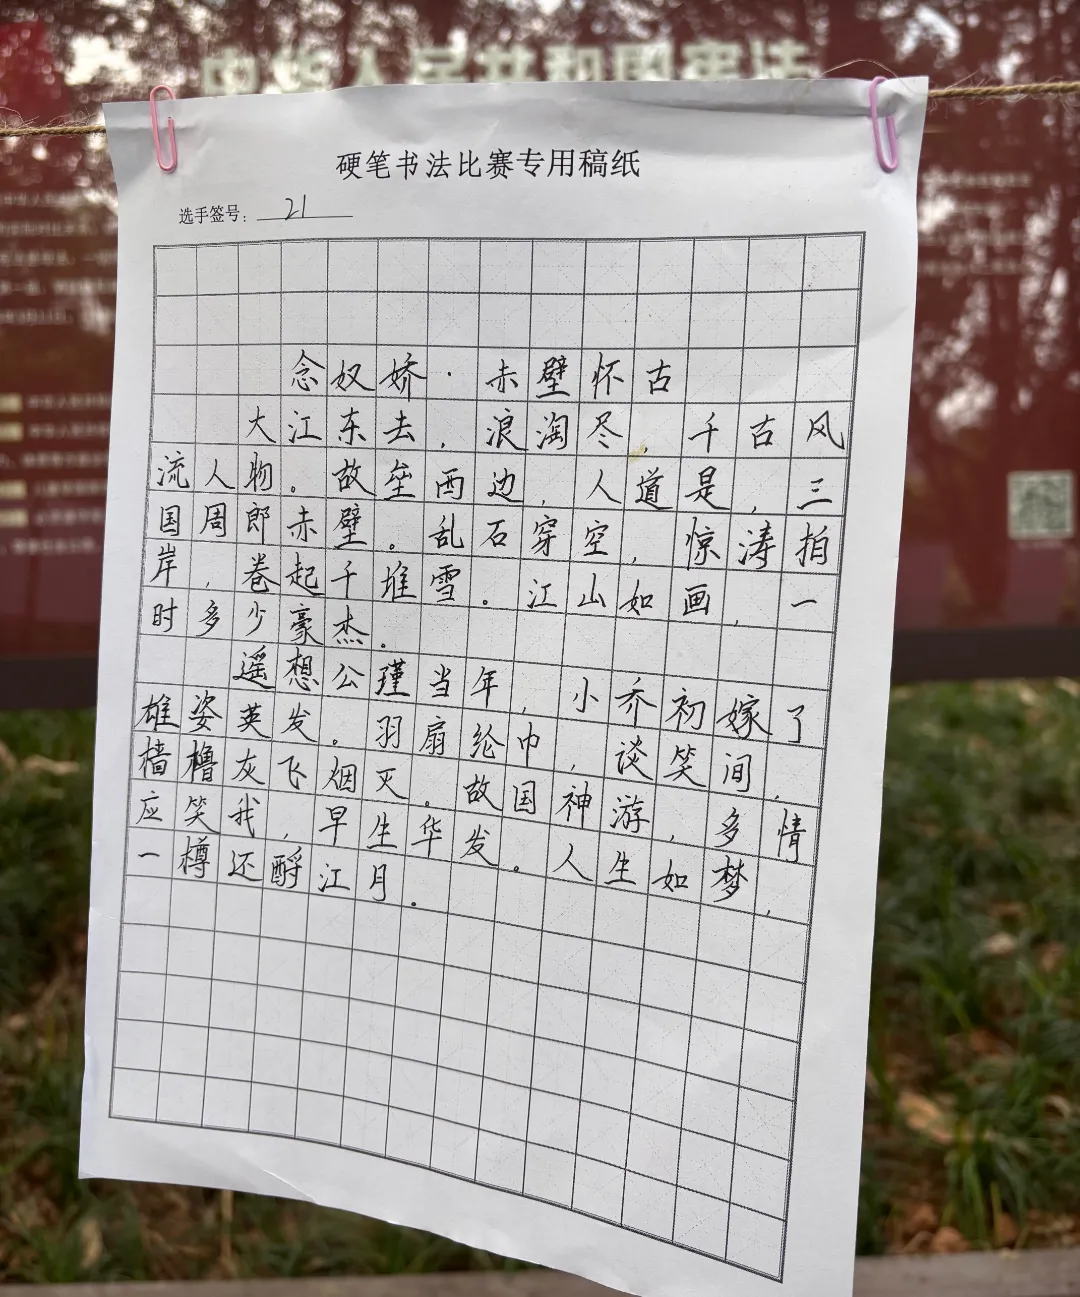 中华人民共和国宪法
硬笔书法比赛专用稿纸
选手签号：21
念奴娇·赤壁怀古
大江东去，浪淘尽，千古风
流人物。故垒西边，人道是，三
国周郎赤壁。乱石穿空，惊涛拍
岸，卷起千堆雪。江山如画，一
时多少豪杰。
遥想公瑾当年，小乔初嫁了
雄姿英发。羽扇纶巾，谈笑间，
樯橹灰飞烟灭。故国神游，多情
应笑我，早生华发。人生如梦，
一樽还酹江月。